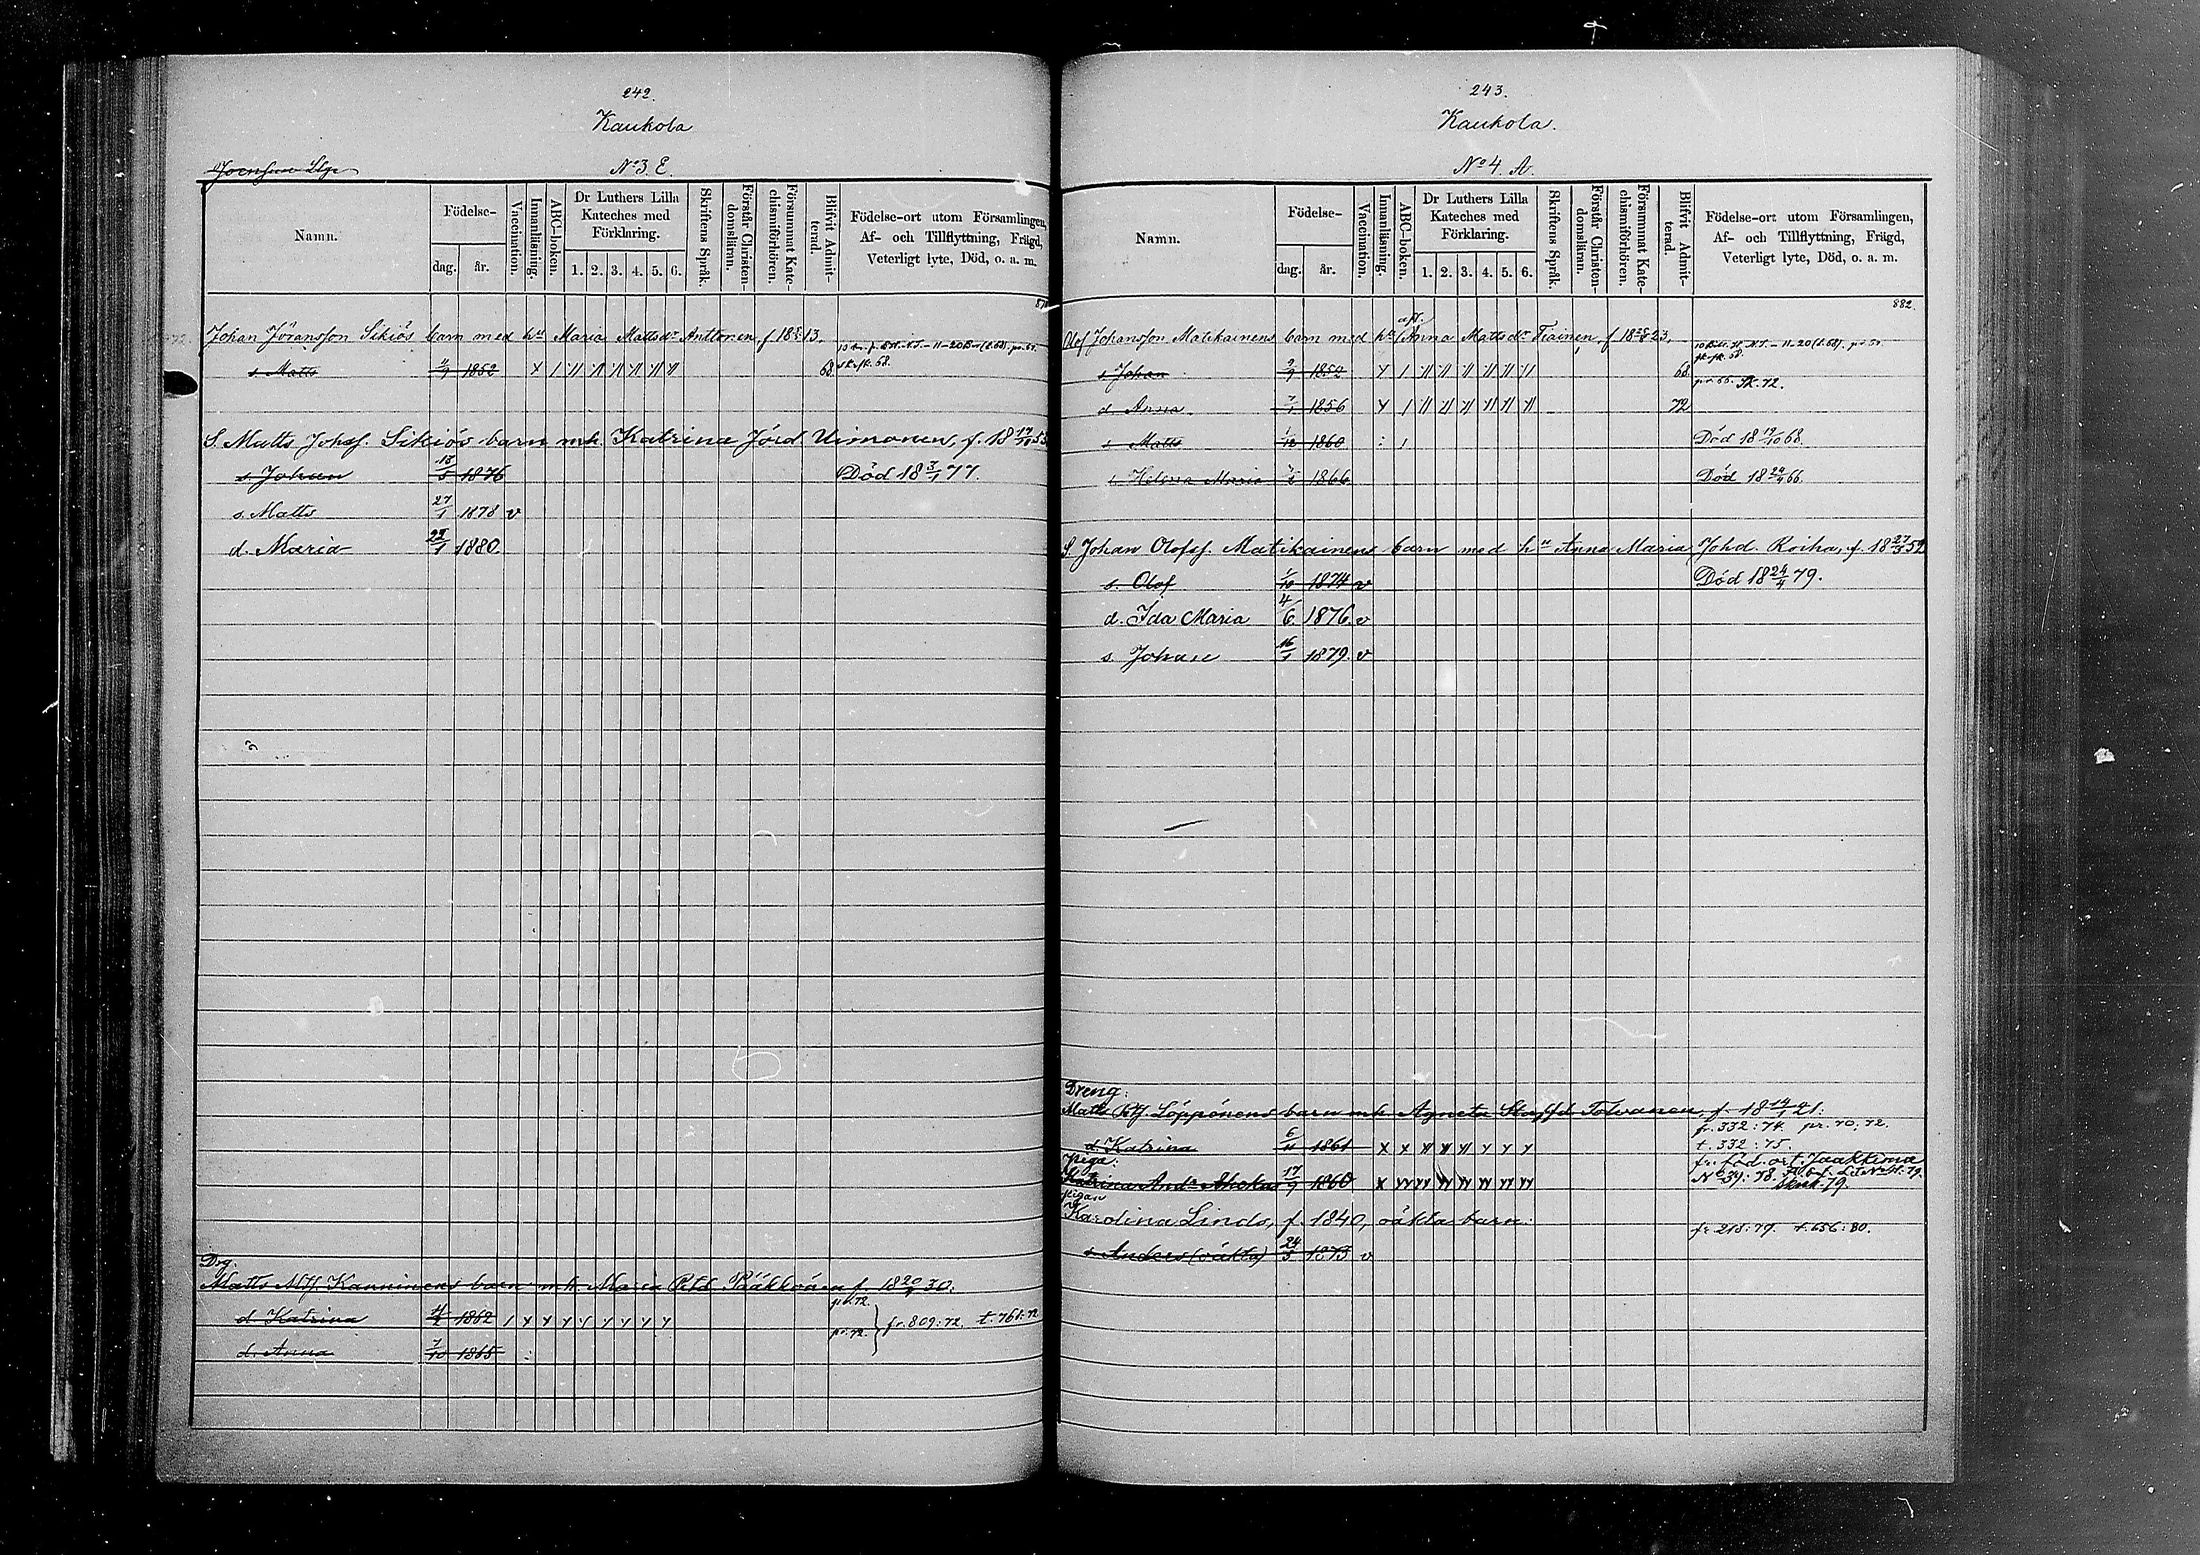 242.
Kaukola
No 3 E.
Namn.
Födelse-
dag.
år.
Vaccination.
Innanläsning.
ABC-boken.
Dr Luthers Lilla
Kateches med
Förklaring.
1. 2. 3. 4. 5. 6.
Skriftens Språk.
Förstår Christen-
domsläran.
Försummat Kate-
chismiförhören.
Blifvit Admit-
terad.
Födelse-ort utom Församlingen,
Af- och Tillflyttning, Frägd,
Veterligt lyte, Död, o. a. m.
Johan Jöransson Sikiös barn med hu Maria Mattsdr Anttonen f 18 13.
s Matts 1852 x 68.
S. Matts Johsf. Sikiös barn mh. Katrina Jörd Uimonen, f. 18 17/10 53
s. Johan 13/5 1876 Död 18 3/1 77.
s. Matts 27/1 1878 v
d. Maria 22/1 1880
Drg.
Matts Mf. Kanninens barn mh. Maria Ptd. Pääkkönen f. 18 20/ 30.
d. Katrina 1862 pr. 72. fr. 809:72. t. 761:72
d. Anna 7/10 1865 : pr. 72.
243.
Kaukola.
No 4. A.
Namn.
Födelse-
dag.
år.
Vaccination.
Innanläsning.
ABC-boken.
Dr Luthers Lilla
Kateches med
Förklaring.
1. 2. 3. 4. 5. 6.
Skriftens Språk.
Förstår Christen-
domsläran.
Försummat Kate-
chismiförhören.
Blifvit Admit-
terad.
Födelse-ort utom Församlingen,
Af- och Tillflyttning, Frägd,
Veterligt lyte, Död, o. a. m.
882.
Olof Johansson Matikainens barn med hu Anna Mattsdr Tiainen, f 18 23.
s Johan 2/9 1852 68.
d Anna 7/1 1856 72
s Matts 1/12 1860 : 1 Död 18 19/10 68.
Helena Maria 1866 Död 18 29/4 66.
S Johan Olofsf. Matikainens barn med hu Anna Maria Johd. Roiha, f. 18 27/3 52
s. Olof 1/10 1874 v Död 18 24/4 79.
d. Ida Maria 4/6 1876 v
s. Johan 16/1 1879. v
Dreng:
Matts Ptf. Löppönens barn mh Agneta Staffd Tolvanen, f. 18 14/1 21.
fr. 332:74. pr. 70:72.
d. Katrina 6/11 1861 t. 332:75.
Piga: fr. föd. ort. Jaakkima
Katrina Andr Ahokas 17/9 1860 No 39:78.
pigan
Karolina Linds, f. 1840, oäkta barn:
fr 218:79. t. 656:80.
s. Anders (oäkta) 24/3 1873 v